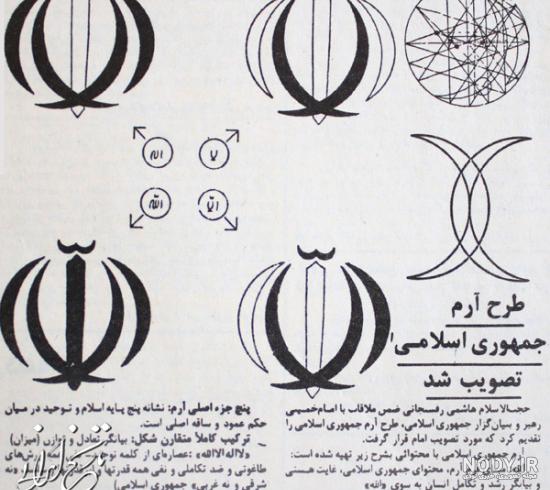 لا
اله
الا
الله
طرح آرم
جمهوری اسلامی
تصویب شد
حجةالاسلام هاشمی رفسنجانی ضمن ملاقات با امام‌خمینی
رهبر و بنیان‌گزار جمهوری اسلامی، طرح آرم جمهوری اسلامی را
تقدیم کرد که مورد تصویب امام قرار گرفت.
آرم جمهوری اسلامی با محتوائی بشرح زیر تهیه شده است:
آرم، محتوای جمهوری اسلامی، غایت هستی
و بیانگر رشد کامل انسان به سوی «الله»
پنج جزء اصلی آرم: نشانه پنج پایه اسلام و توحید در میان
حکم عمود و ساقه اصلی است.
ترکیب کاملاً متقارن شکل: بیانگر تعادل و توازن (میزان)
«لااله‌الاالله»: عصاره‌ای از کلمه
طاغوتی و ضد تکاملی و نفی همه قدرتها
شرقی و نه غربی» جمهوری اسلامی)
NODY.IR
NODY.IR